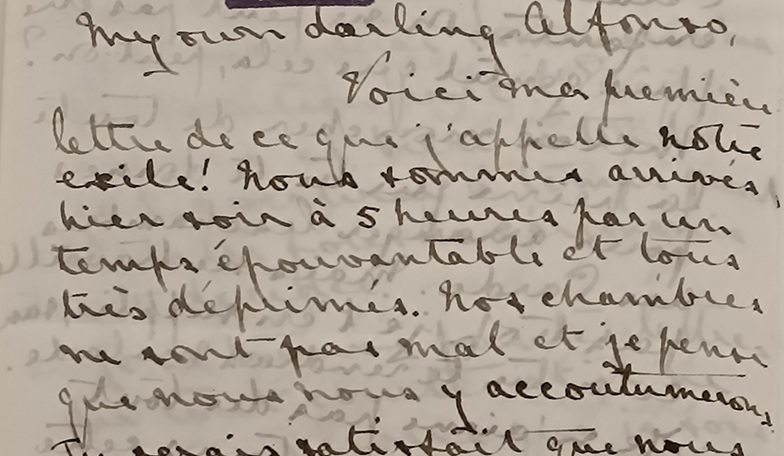 My own darling Alfonso,
Voici ma première
lettre de ce que j'appelle notre
exile! Nous sommes arrivés,
hier soir à 5 heures par un
temps épouvantable et tous
très déprimés. Nos chambres
ne sont pas mal et je pense
que nous nous y accoutumerons,
Tu serais satisfait que nous